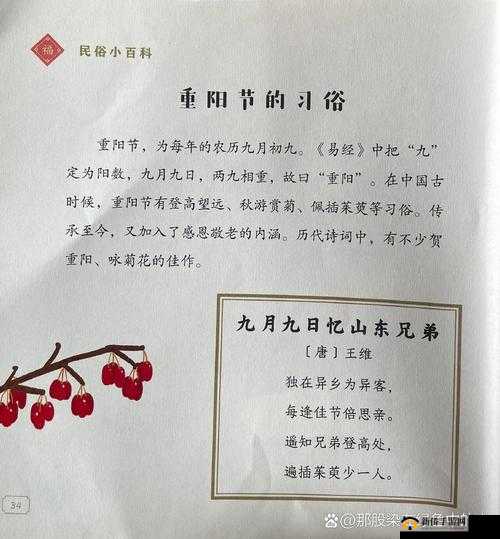 福
民俗小百科
重阳节的习俗
重阳节，为每年的农历九月初九。《易经》中把“九”
定为阳数，九月九日，两九相重，故曰“重阳”。在中国古
时候，重阳节有登高望远、秋游赏菊、佩插茱萸等习俗。传
承至今，又加入了感恩敬老的内涵。历代诗词中，有不少贺
重阳、咏菊花的佳作。
九月九日忆山东兄弟
〔唐〕王维
独在异乡为异客，
每逢佳节倍思亲。
遥知兄弟登高处，
遍插茱萸少一人。
34
@那股染